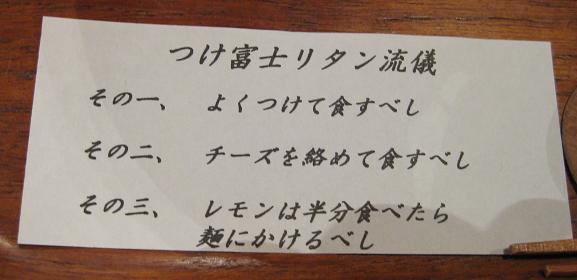 つけ富士リタン流儀
その一、 よくつけて食すべし
その二、 チーズを絡めて食すべし
その三、 レモンは半分食べたら
麺にかけるべし